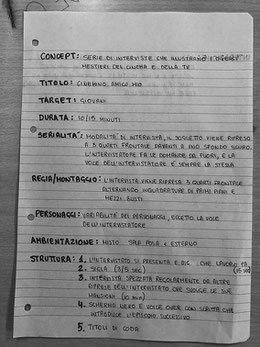 CONCEPT: SERIE DI INTERVISTE CHE ILLUSTRANO I DIVERSI
MESTIERI DEL CINEMA E DELLA TV
TITOLO: CINEMANO AMICO MIO
TARGET: GIOVANI
DURATA: 10/15 MINUTI
SERIALITÀ: MODALITÀ DI INTERVISTA, IL SOGGETTO VIENE RIPRESO
A 3 QUARTI FRONTALE DAVANTI A UNO SFONDO SCURO.
L'INTERVISTATORE FA LE DOMANDE DA FUORI, E LA
VOCE DELL'INTERVISTATORE È SEMPRE LA STESSA
REGIA/MONTAGGIO: L'INTERVISTA VIENE RIPRESA 3 QUARTI FRONTALE
ALTERNANDO INQUADRATURE DI PRIMI PIANI E
MEZZI BUSTI
PERSONAGGI: VARIABILITÀ DEI PERSONAGGI, ECCETTO LA VOCE
DELL'INTERVISTATORE
AMBIENTAZIONE: MISTO SALA POSA E ESTERNO
STRUTTURA: 1. L'INTERVISTATO SI PRESENTA E DICE CHE LAVORO FA
(15 sec)
2. SIGLA (3/5 sec)
3. INTERVISTA SPEZZATA REGOLARMENTE DA ALTRE
RIPRESE DELL'INTERVISTATO CHE SVOLGE LE SUE
MANSIONI (10 min)
4. SCHERMO NERO E VOICE OVER CON SCRITTA CHE
INTRODUCE L'EPISODIO SUCCESSIVO
5. TITOLI DI CODA